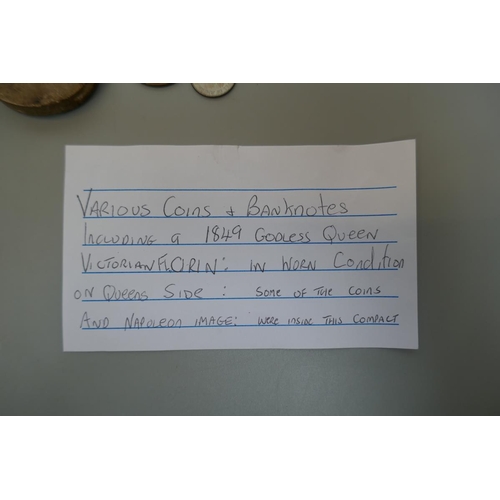 VARIOUS COINS + BANKNOTES
INCLUDING A 1849 GODLESS QUEEN
VICTORIAN FLORIN: IN WORN CONDITION
ON QUEENS SIDE: SOME OF THE COINS
AND NAPOLEON IMAGE: WERE INSIDE THIS COMPACT